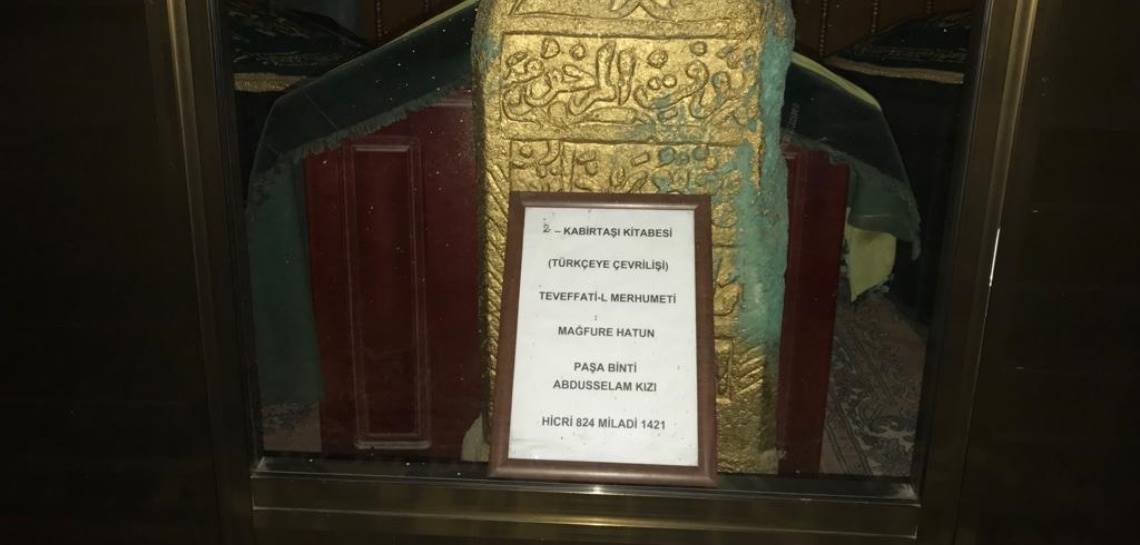 توفت المرحومة
2 – KABİRTAŞI KİTABESİ
(TÜRKÇEYE ÇEVRİLİŞİ)
TEVEFFATİ-L MERHUMETİ
:
MAĞFURE HATUN
PAŞA BİNTİ
ABDUSSELAM KIZI
HİCRİ 824 MİLADİ 1421